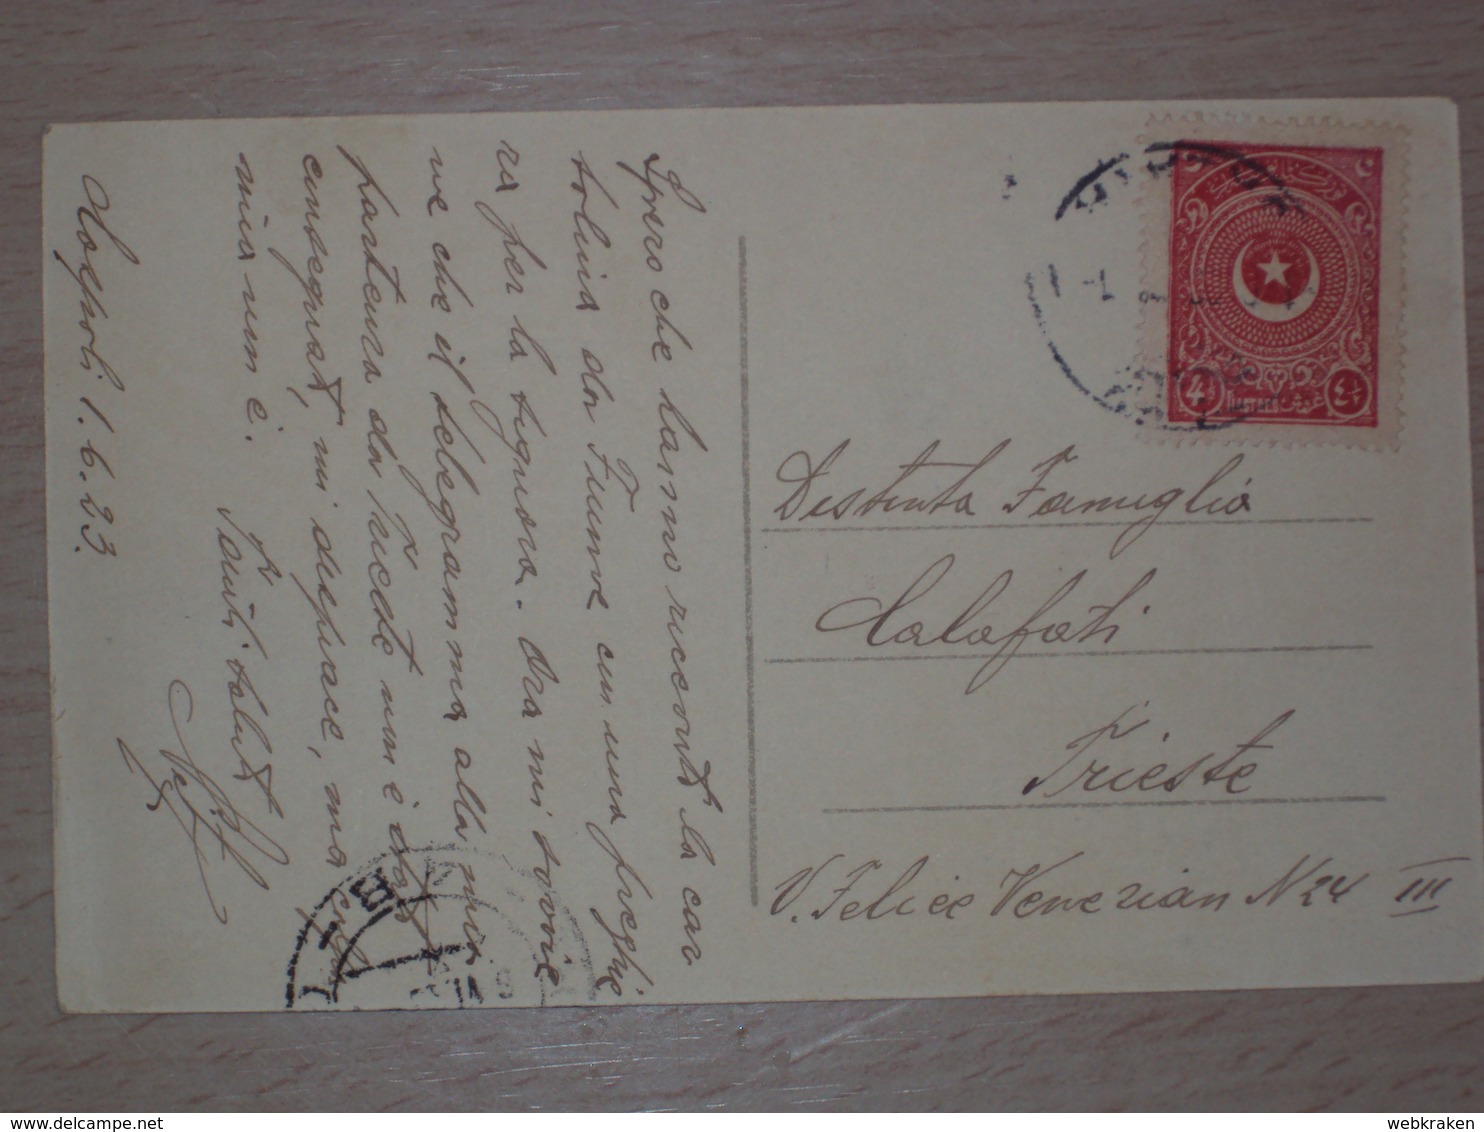 Spero che hanno ricevuto la car
tolina da Fiume con una preghie
ra per la signora. Ora mi scrivie
ne che il telegramma alla mia
partenza da Trieste non è stato
consegnato, mi dispiace, ma colpa
mia non è.
Tanti saluti
1.6.23.
Destinta Famiglia
Calafati
Trieste
V. Felice Venezian N 24 III
4½
B
webkraken